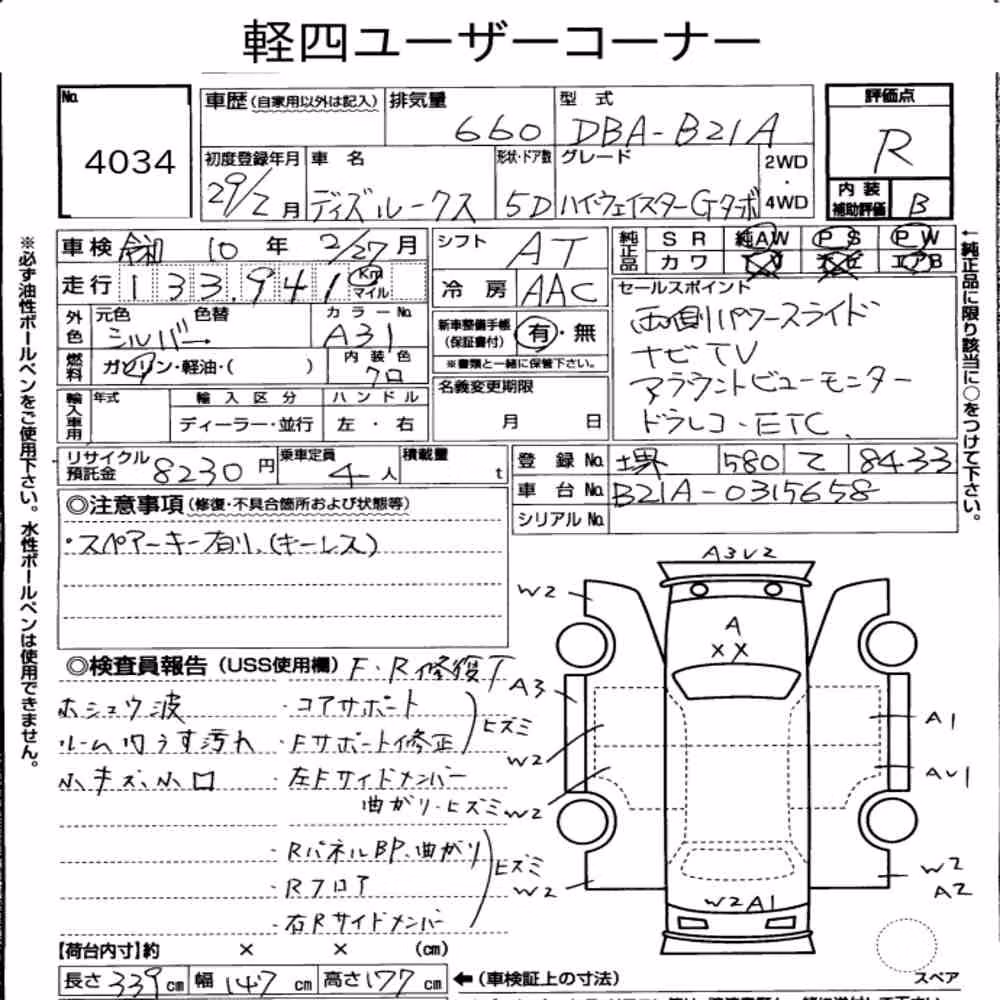 軽四ユーザーコーナー
No. 4034
車歴(自家用以外は記入)
排気量 660
型式 DBA-B21A
評価点 R
初度登録年月 29/2月
車名 ディズルークス
形状・ドア数 5D
グレード ハイウェイスターGターボ
2WD・4WD
内装補助評価 B
車検 令和 10年 2/27月
シフト AT
純正品 SR 純AW PS PW
カワ TV ナビ エアB
走行 133,941 Km マイル
冷房 AAC
セールスポイント
両側パワースライド
ナビTV
アラウンドビューモニター
ドラレコ・ETC
外色 元色 シルバー 色替
カラーNo. A31
新車整備手帳(保証書付) 有・無
※書類と一緒に保管下さい。
燃料 ガソリン・軽油・( )
内装色 クロ
名義変更期限 月 日
輸入車用 年式 輸入区分 ハンドル
ディーラー・並行 左・右
リサイクル預託金 8230円
乗車定員 4人
積載量 t
登録No. 堺 580 て 8433
車台No. B21A-0315658
シリアルNo.
◎注意事項(修復・不具合箇所および状態等)
・スペアーキー有り、(キーレス)
※必ず油性ボールペンをご使用下さい。水性ボールペンは使用できません。
←純正品に限り該当に○をつけて下さい。
◎検査員報告(USS使用欄) F・R修復了
ホシュウ波 ・コアサポート
ルーム内うす汚れ ・Fサポート修正 ヒズミ
小キズ、小凹 ・左Fサイドメンバー
曲がり・ヒズミ
・RパネルBP、曲がり
・Rフロア ヒズミ
・右Rサイドメンバー
A3V2
W2
A
XX
A3
W2
A1
W2
AU1
W2
W2
A2
W2A1
スペア
【荷台内寸】約 × × (cm)
長さ 339cm 幅 147cm 高さ 177cm ←(車検証上の寸法)